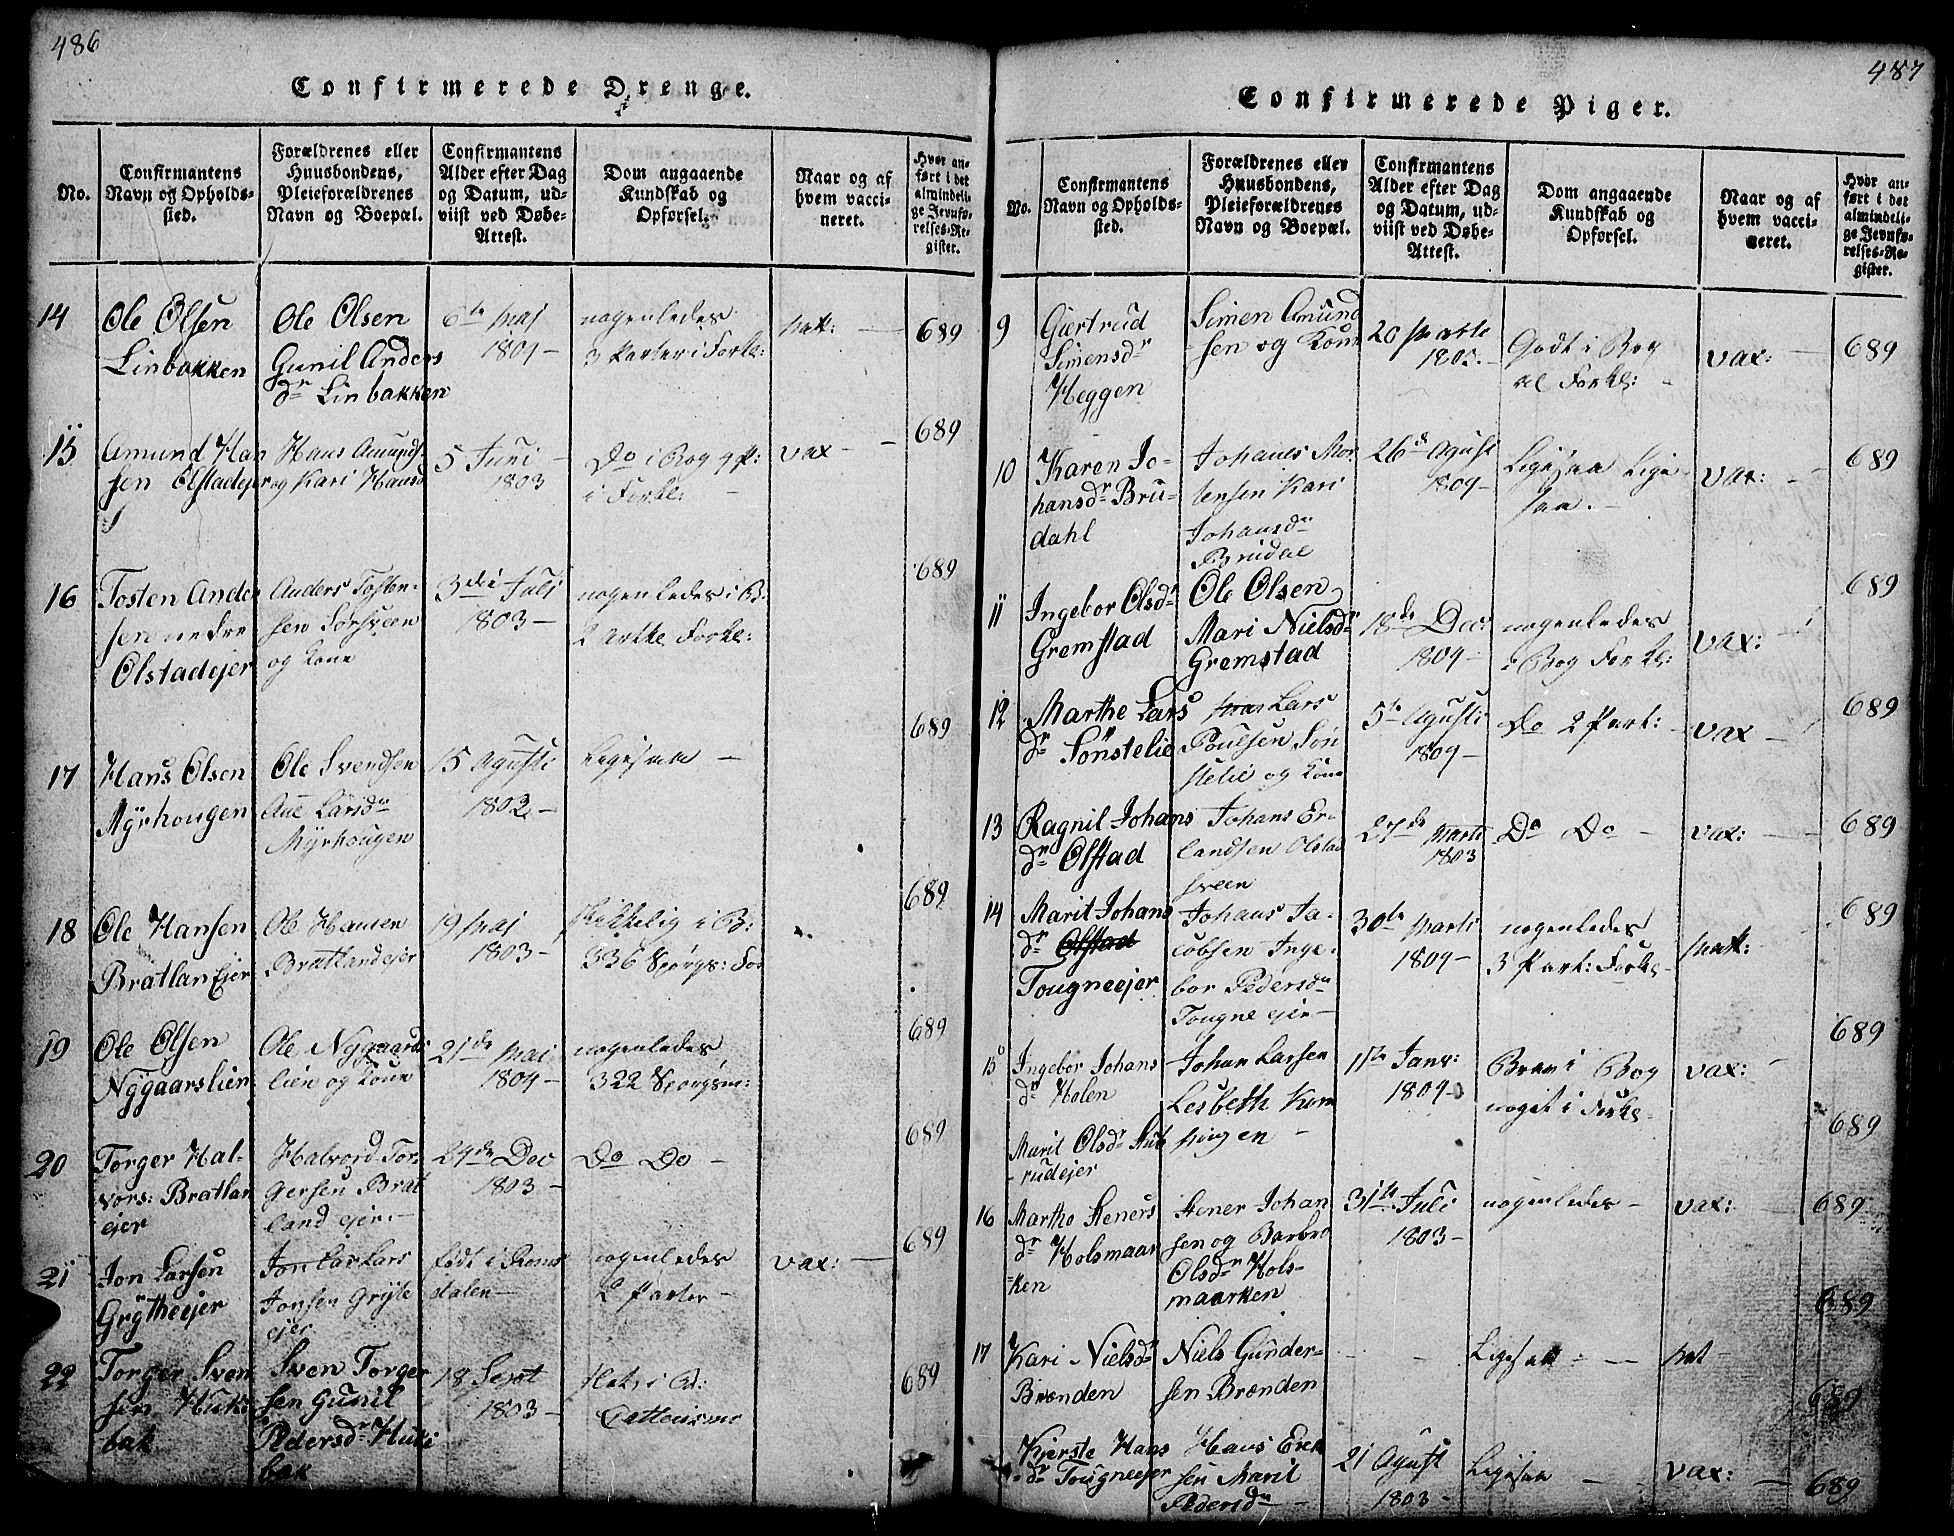 486
Confirmerede Drenge.
No.
Confirmantens
Navn og Opholds-
sted.
Forældrenes eller
Huusbondens,
Pleieforældrenes
Navn og Boepæl.
Confirmantens
Alder efter Dag
og Datum, ud-
viist ved Døbe-
Attest.
Dom angaaende
Kundskab og
Opførsel.
Naar og af
hvem vacci-
neret.
Hvor an-
ført i det
almindeli-
ge Jevnfø-
relses-Re-
gister.
14
Ole Olsen
Linbakken
Ole Olsen
Gunil Anders
dr Linbakken
6te Maj
1804 –
nogenledes
3 Parter i Forkl:
nat:
689
15
Amund Han
sen Olstadejer
Hans Amunds
og Kari Hansd
5 Juni
1803
Do i Bog
i Forkl:
vax
689
16
Tosten Ander
sen nedre
Olstadejer
Anders Tosten-
sen Sorsveen
og Kone
3de Juli
1803 –
nogenledes i B:
2 Forkl:
689
17
Hans Olsen
Myrhougen
Ole Svendsen
Ane Larsdr
Myrhougen
15 Agusti
1802 –
Ligesaa
689
18
Ole Hansen
Bratlan Ejer
Ole Hansen
Bratlandejer
19 Maj
1803 –
Skikkelig i B:
336 Spørgs: For
689
19
Ole Olsen
Nygaarslien
Ole Nygaards
lien og Kone
21de Maj
1804 –
nogenledes
322 Spørgsm:
689
20
Torger Hal-
vors: Bratlan
ejer
Halvord Tor-
gersen Brat
land ejer. –
24de Dec
1803 –
Do Do –
689
21
Jon Larsen
Grytheejer
Lars
Jonsen Gryte
ejer
født i Roms
dalen –
nogenledes
2 Parter –
vax:
689
22
Torger Sven
sen Huke
bak
Sven Torger
sen Gunil
Pedersdr Huke
bak
18 Sept
1803 –
i B:
689
487
Confirmerede Piger.
No.
Confirmantens
Navn og Opholds-
sted.
Forældrenes eller
Huusbondens,
Pleieforældrenes
Navn og Boepæl.
Confirmantens
Alder efter Dag
og Datum, ud-
viist ved Døbe-
Attest.
Dom angaaende
Kundskab og
Opførsel.
Naar og af
hvem vacci-
neret.
Hvor an-
ført i det
almindeli-
ge Jevnfø-
relses-Re-
gister.
9
Giertrud
Simensdr
Heggen
Simen Amund
sen og Kone
20 Marti
1803. –
Godt i Bog
Forkl: –
vax:
689
10
Karen Jo-
hansdr Bru-
dahl
Johanes Mor
tensen Kari
Johansdr
Brudal
26de Agust
1804 –
Ligesaa Lige
saa. –
vax:
689
11
Ingebor Olsdr
Gremstad
Ole Olsen
Mari Nielsdr
Gremstad
18de Dec:
1804 –
nogenledes
i Bog Forkl:
vax:
689
12
Marthe Lars
dr Sønstelie
Lars
Poulsen Søn
stelie og Kone
5te Agusti
1804 –
Do 2 Part:
vax
689
13
Ragnil Johans
dr Olstad
Johans Er-
landsen Olstad
sveen
27de Marti
1803
Do Do
vax:
689
14
Marit Johans
dr Olstad
Tougneejer
Johans Ja-
cobsen Inge-
bor Pedersdr
Tougne ejer –
30te Marti
1804 –
nogenledes
3 Part: Forkl –
nat:
689
15
Ingebor Johans
dr Holen
Johan Larsen
Lesbeth
1804
Brav i Bog
noget i Forkl –
vax:
689
Marit Olsdr
rudejer
689
16
Marthe Steners
dr Holsmaar
ken
Stener Johan
sen og Barbro
Olsdr Hols-
maarken
31te Juli
1803 –
nogenledes –
vax:
689
17
Kari Nielsdr
Brenden
Niels Gunder-
sen Brenden
Ligesaa
nat –
689
Kjerste Hans
dr Tougneejer
Hans Erek
sen Marit
Pedersdr –
21 Agust
1803 –
Ligesaa
vax:
689
689